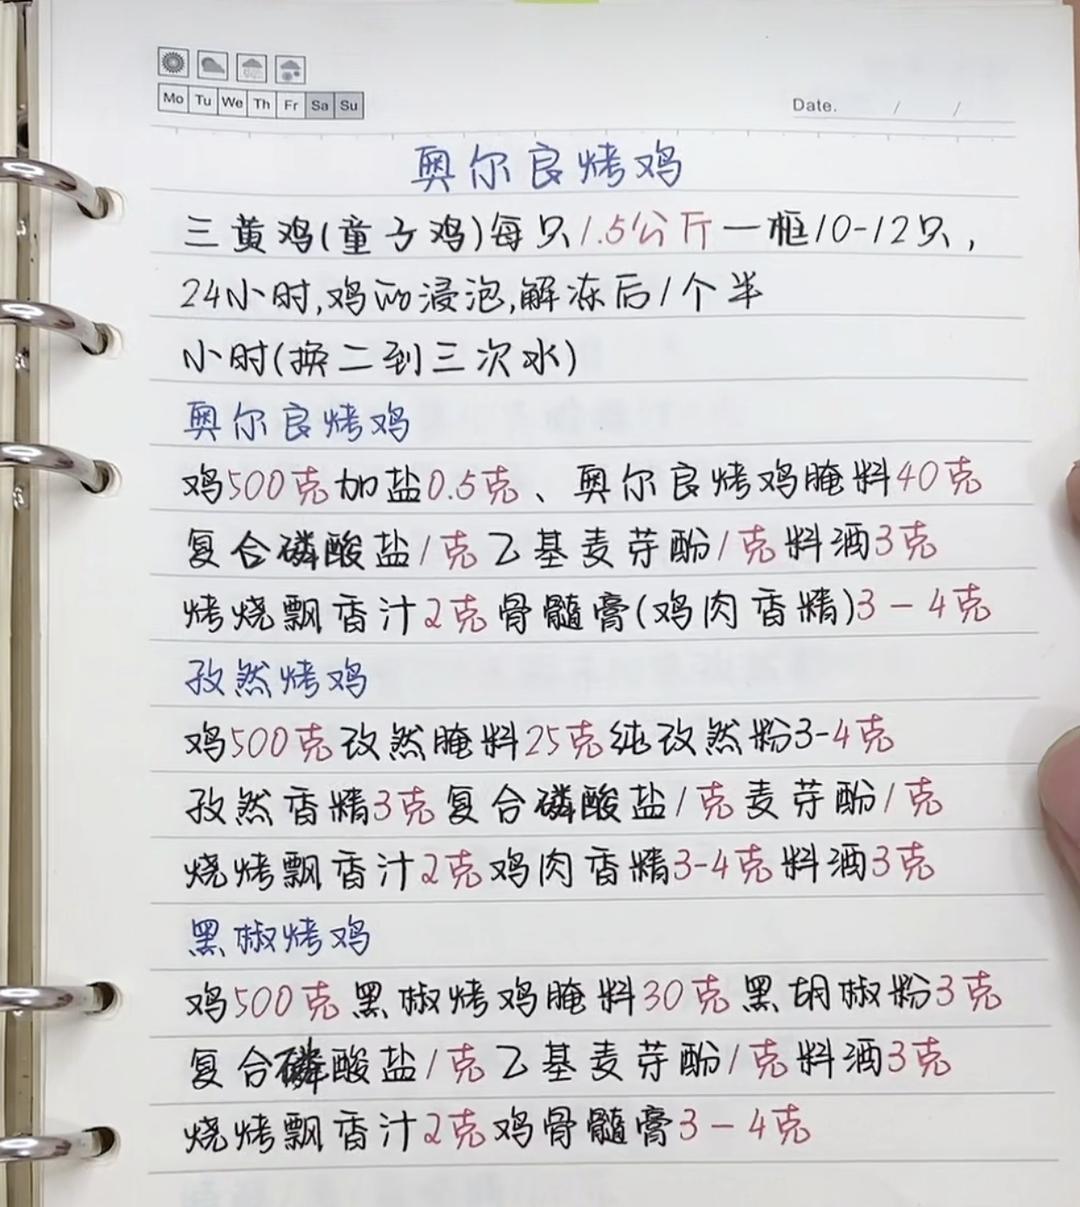 Mo Tu We Th Fr Sa Su
Date. / /
奥尔良烤鸡
三黄鸡(童子鸡)每只1.5公斤一框10-12只,
24小时,鸡的浸泡,解冻后1个半
小时(换二到三次水)
奥尔良烤鸡
鸡500克加盐0.5克、奥尔良烤鸡腌料40克
复合磷酸盐1克乙基麦芽酚1克料酒3克
烤烧飘香汁2克骨髓膏(鸡肉香精)3-4克
孜然烤鸡
鸡500克孜然腌料25克纯孜然粉3-4克
孜然香精3克复合磷酸盐1克麦芽酚1克
烧烤飘香汁2克鸡肉香精3-4克料酒3克
黑椒烤鸡
鸡500克黑椒烤鸡腌料30克黑胡椒粉3克
复合磷酸盐1克乙基麦芽酚1克料酒3克
烧烤飘香汁2克鸡骨髓膏3-4克